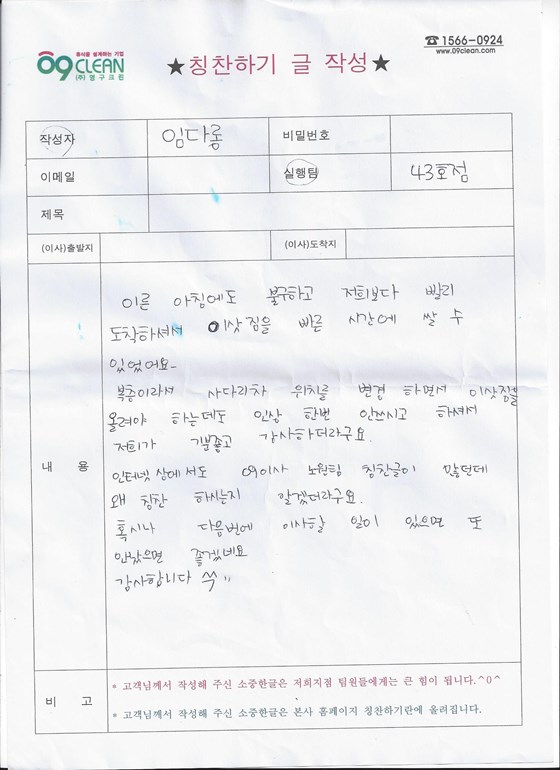 휴식을 설계하는 기업
09CLEAN
(주)영구크린
☎ 1566-0924
www.09clean.com
★칭찬하기 글 작성★
작성자 임다롱 비밀번호
이메일 실행팀 43호점
제목
(이사)출발지 (이사)도착지
내 용
이른 아침에도 불구하고 저희보다 빨리
도착하셔서 이삿짐을 빠른 시간에 쌀 수
있었어요~
복층이라서 사다리차 위치를 변경 하면서 이삿짐을
올려야 하는데도 인상 한번 안쓰시고 하셔서
저희가 기분좋고 감사하더라구요.
인터넷 상에서도 09이사 노원팀 칭찬글이 많던데
왜 칭찬 하시는지 알겠더라구요.
혹시나 다음번에 이사할 일이 있으면 또
만났으면 좋겠네요
감사합니다
비 고
* 고객님께서 작성해 주신 소중한글은 저희지점 팀원들에게는 큰 힘이 됩니다.^0^
* 고객님께서 작성해 주신 소중한글은 본사 홈페이지 칭찬하기란에 올려집니다.